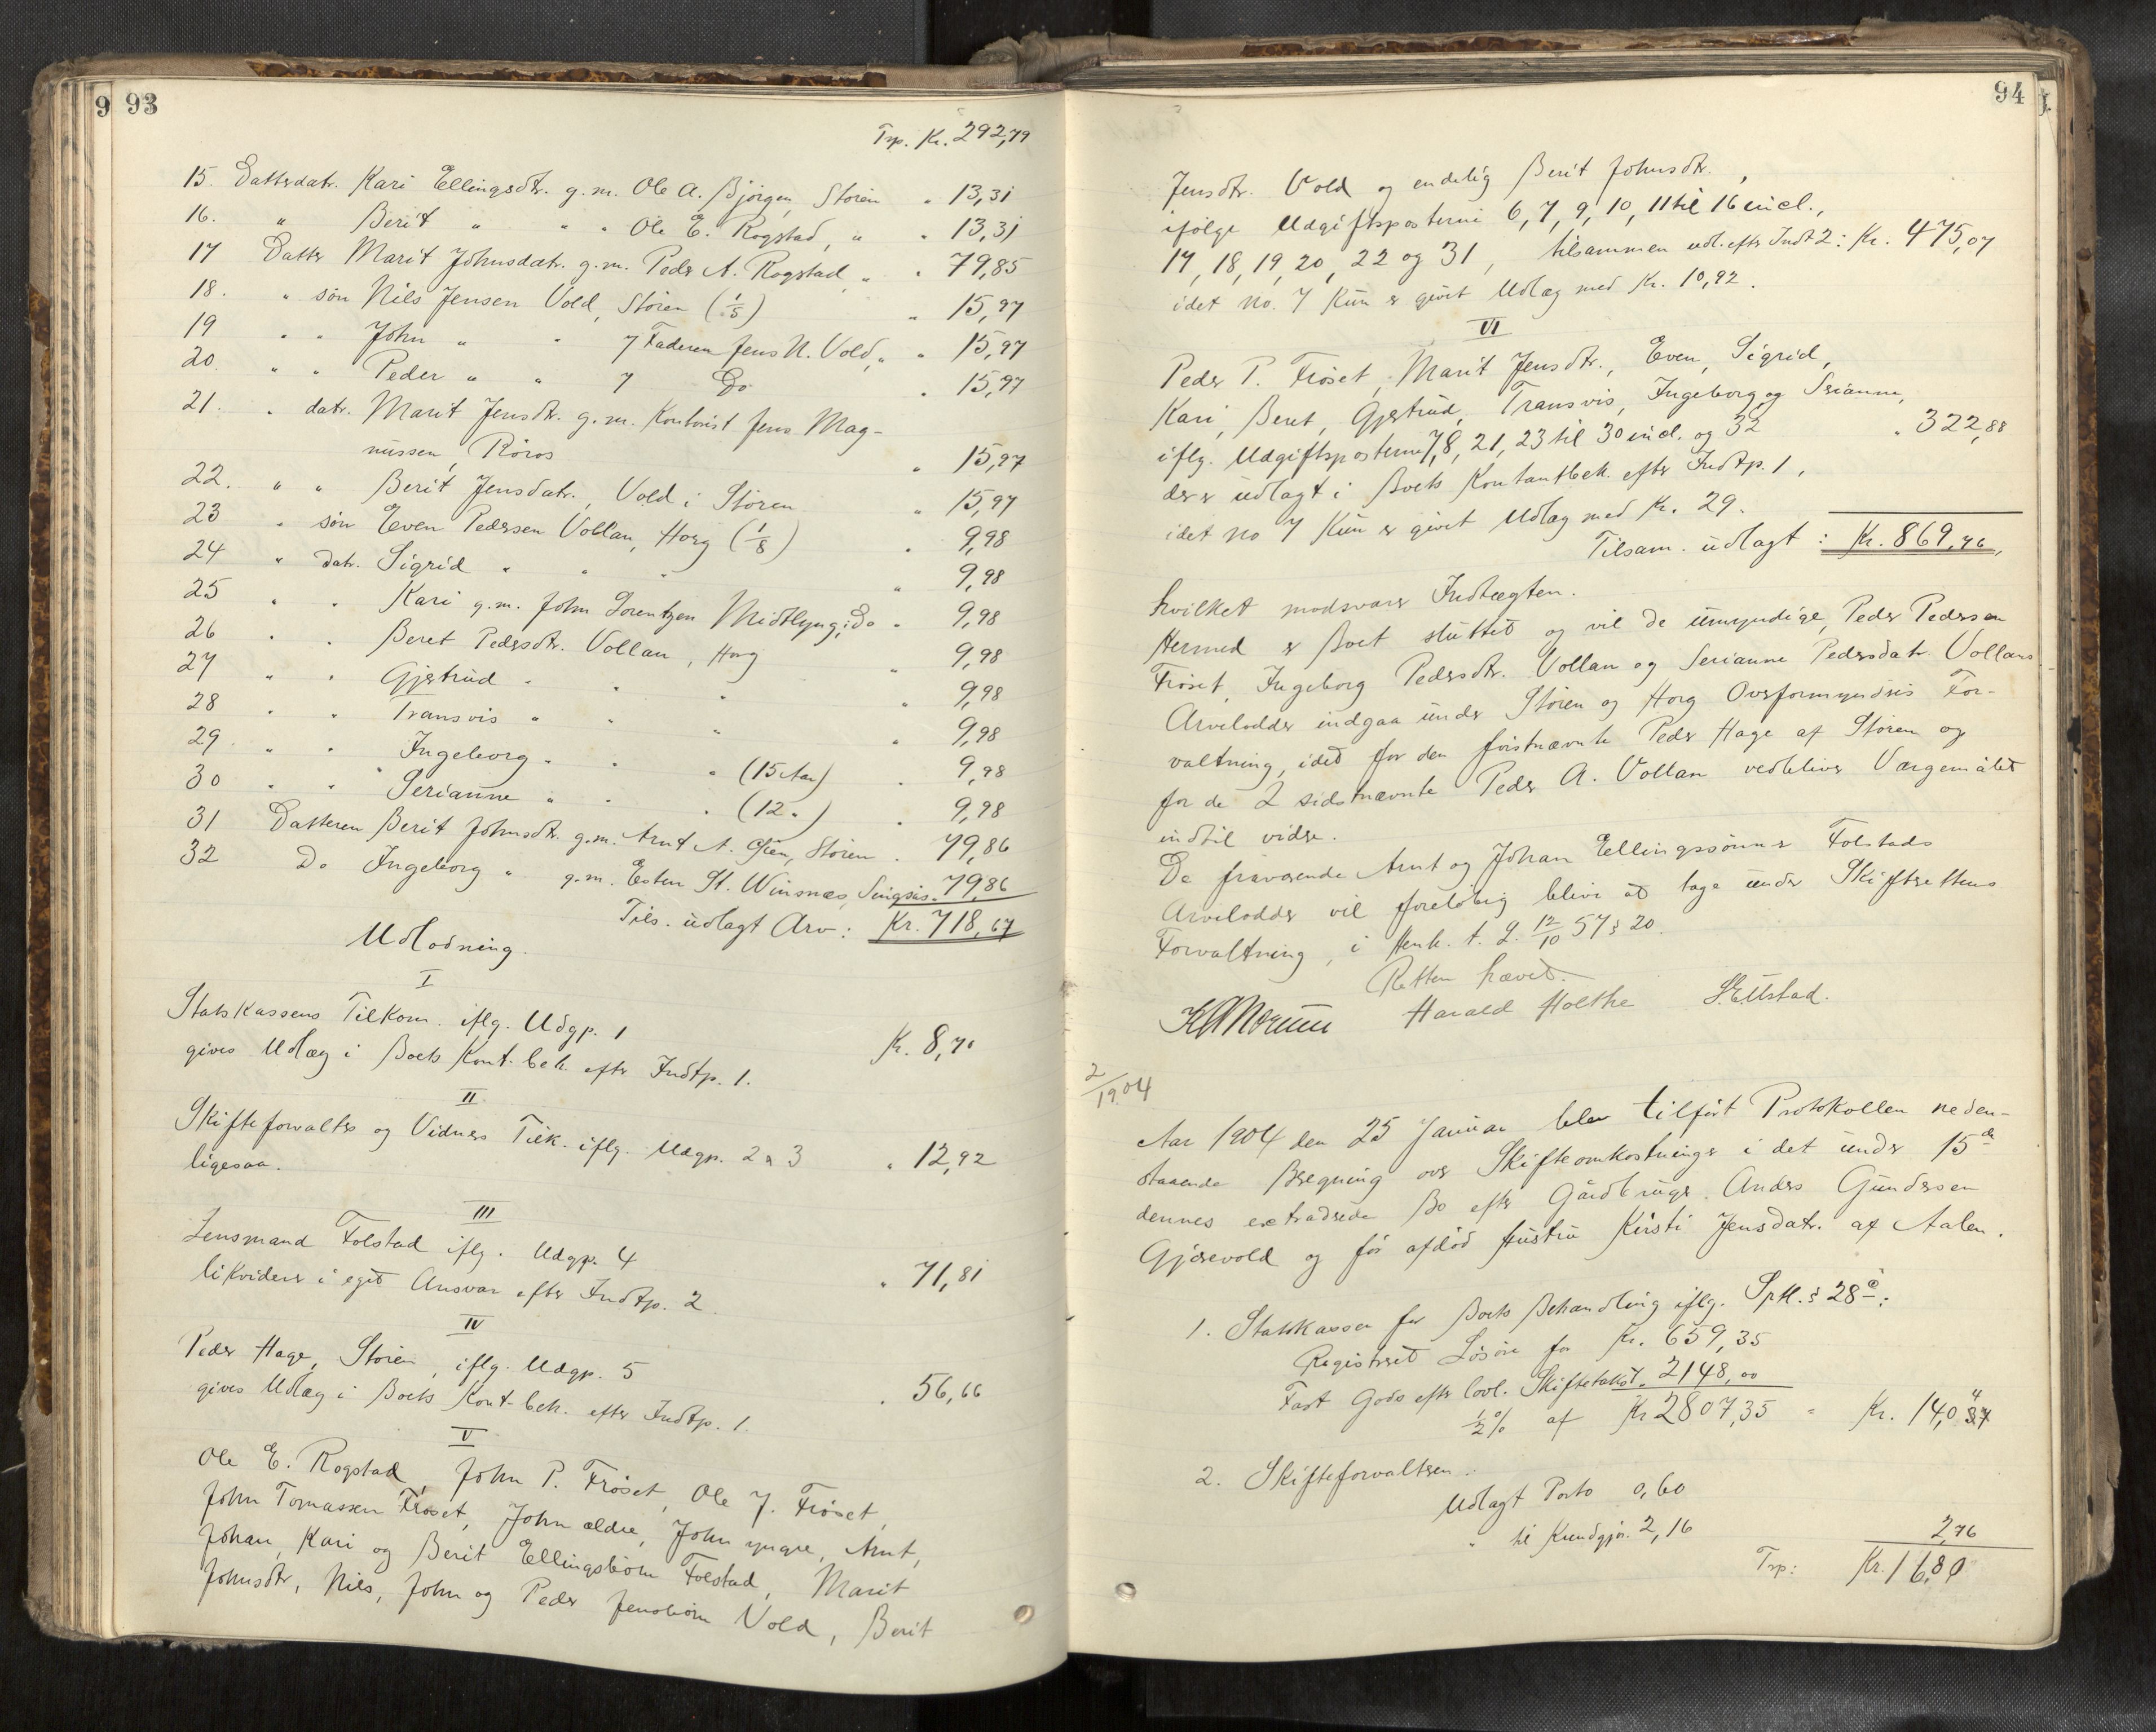 9 93
Trp. Kr. 292,79
15. Datterdatr. Kari Ellingsdtr. g.m. Ole A. Bjørgen, Støren " 13,31
16. " Berit " " " Ole E. Rogstad, " " 13,31
17 Datter Marit Johnsdatr. g.m. Peder A. Rogstad, " " 79,85
18. " søn Nils Jensen Vold, Støren (1/5) " 15,97
19 " " John " " 7 Faderen Jens N. Vold, " " 15,97
20. " " Peder " " 7 Do " 15,97
21. " datr. Marit Jensdtr. g.m. Kontorist Jens Mag-
nussen, Røros " 15,97
22. " " Berit Jensdatr., Vold i Støren " 15,97
23 " søn Even Pedersen Vollan, Horg (1/8) " 9,98
24 " datr. Sigrid " " " " 9,98
25 " " Kari g.m. John Lorentzen Midtlyng, Do " 9,98
26 " " Beret Pedersdtr. Vollan, Horg " 9,98
27 " " Gjertrud " " " " 9,98
28 " " Transvis " " " " 9,98
29 " " Ingeborg " " " (15 Aar) " 9,98
30 " " Serianne " " " (12 ") " 9,98
31 Datteren Berit Johnsdtr. g.m. Arnt A. Øien, Støren " 79,86
32 Do Ingeborg " g.m. Esten St. Winsnes, Singsås " 79,86
Tils. udlagt Arv: Kr. 718,67
Udlodning.
I
Statskassens Tilkom. iflg. Udgp. 1
gives Udlæg i Boets Kont. beh. efter Indtp. 1. Kr. 8,70
II
Skifteforvalter og Vidners Tilk. iflg. Udgp. 2 & 3
ligesaa. " 12,92
III
Lensmand Folstad iflg. Udgp. 4
likviderer i eget Ansvar efter Indtp. 2. " 71,81
IV
Peder Hage, Støren, iflg. Udgp. 5
gives Udlæg i Boets Kont-beh. efter Indtp. 1. " 56,66
V
Ole E. Rogstad, John P. Frøset, Ole J. Frøset,
John Tomassen Frøset, John ældre, John yngre, Arnt,
Johan, Kari og Berit Ellingsbørn Folstad, Marit
Johnsdtr, Nils, John og Peder Jensbørn Vold, Berit
94
Jensdtr. Vold og endelig Berit Johnsdtr.,
ifølge Udgiftsposterne 6, 7, 9, 10, 11 til 16 incl.,
17, 18, 19, 20, 22 og 31, tilsammen udl. efter Indt 2: Kr. 475,07
idet no. 7 kun er givet Udlæg med Kr. 10,92.
VI
Peder P. Frøset, Marit Jensdtr., Even, Sigrid,
Kari, Beret, Gjertrud, Transvis, Ingeborg og Serianne,
iflg. Udgiftsposterne 7, 8, 21, 23 til 30 incl. og 32 " 322,88
der er udlagt i Boets Kontantbeh. efter Indtp. 1,
idet no 7 kun er givet Udlæg med Kr. 29.
Tilsam. udlagt: Kr. 869,46,
hvilket modsvarer Indtægten.
Hermed er Boet sluttet og vil de umyndige, Peder Pedersen
Frøset, Ingeborg Pedersdtr. Vollan og Serianne Pedersdatr. Vollans
Arvelodder indgaa under Støren og Horg Overformynderis For-
valtning, idet for den førstnævnte Peder Hage af Støren og
for de 2 sidstnævnte Peder A. Vollan vedbliver Værgemålet
indtil videre.
De fraværende Arnt og Johan Ellingssønner Folstads
Arvelodder vil foreløbig blive at tage under Skifterettens
Forvaltning, i Henh. t. L. 12/10 57 § 20.
Retten hævet.
Harald Holthe
2/1904
Aar 1904 den 25 Januar blev tilført Protokollen neden-
staaende Beregning over Skifteomkostninger i det under 15de
dennes extraderede Bo efter Gårdbruger Anders Gundersen
Gjærevold og før afdød Hustru Kirsti Jensdatr. af Aalen.
1. Statskassen for Boets Behandling iflg. Sptl. § 28 a:
Registreret Løsøre for Kr. 659,35
Fast Gods efter lovl. Skiftetakst " 2148,00
1/2 % af Kr 2807,35 = Kr. 14,04
2. Skifteforvalteren:
Udlagt Porto 0,60
" til Kundgjør. 2,16 2,76
Trp: Kr. 16,80